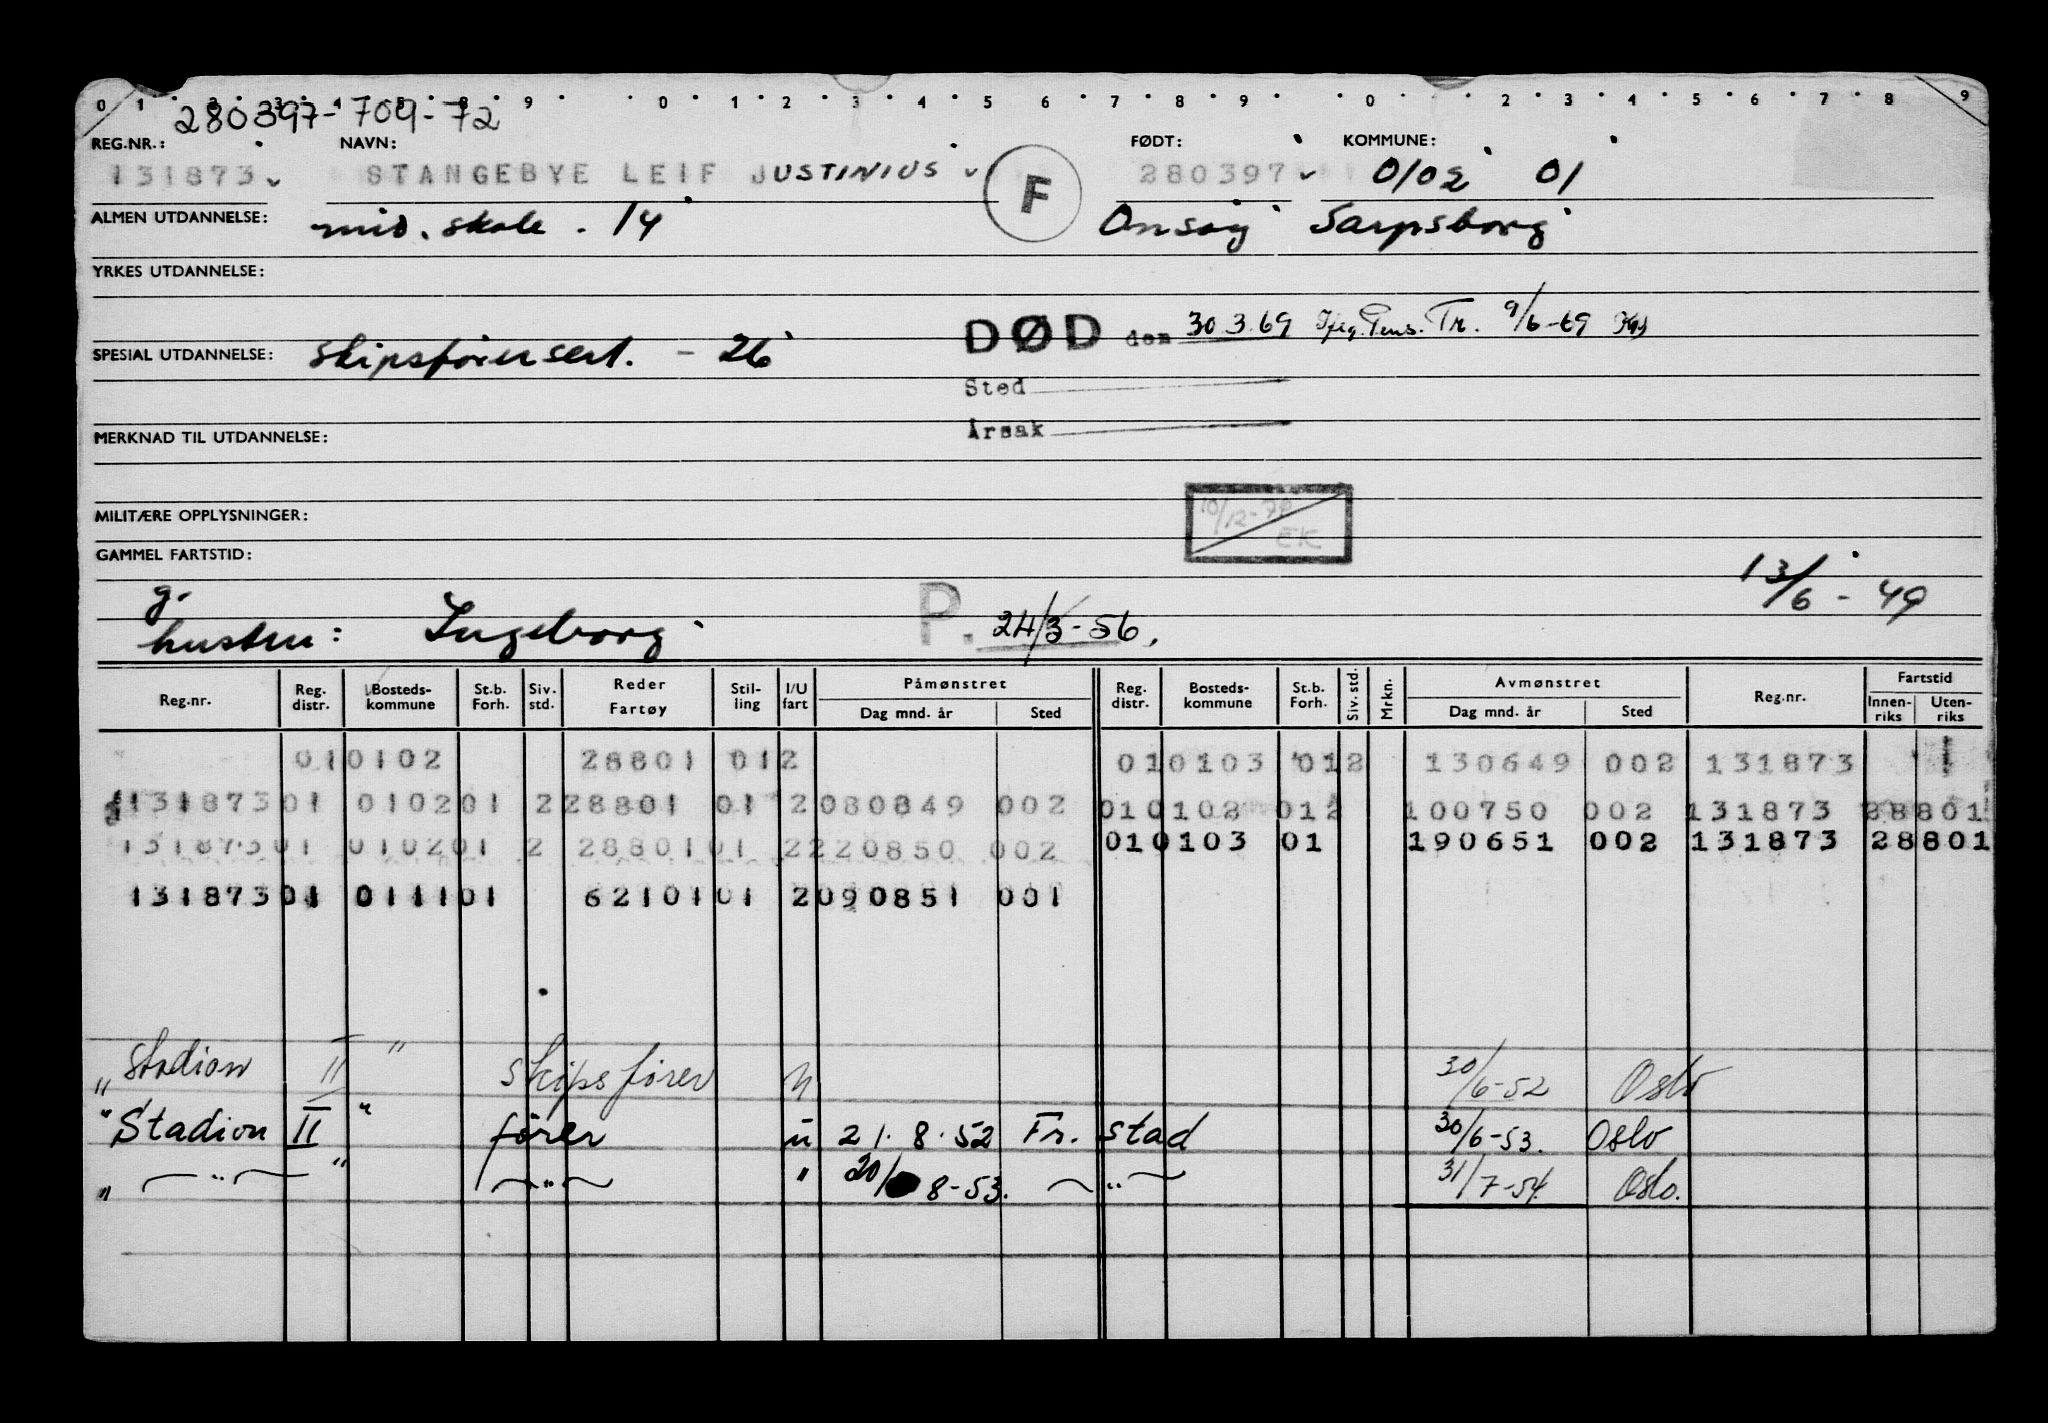 0 1 2 3 4 5 8 9 0 1 2 3 4 5 6 7 8 9 0 2 3 4 5 6 7 8 9
280397-709-72
REG.NR.: NAVN: FØDT: KOMMUNE:
131873 STANGEBYE LEIF JUSTINIUS F 280397 0102 01
ALMEN UTDANNELSE: mid. skole . 14 Onsøy Sarpsborg
YRKES UTDANNELSE:
DØD den 30.3.69 Tr. 9/6-69
SPESIAL UTDANNELSE: Skipsførersert. - 26
Sted
Årsak
MERKNAD TIL UTDANNELSE:
10/12-70 EK
MILITÆRE OPPLYSNINGER:
GAMMEL FARTSTID:
g. 13/6-49
hustru: Ingeborg P. 24/3-56.
Reg.nr. Reg. distr. Bosteds-kommune St.b. Forh. Siv. std. Reder Fartøy Stil-ling I/U fart Påmønstret Dag mnd. år Sted Reg. distr. Bosteds-kommune St.b. Forh. Siv. std. Mrkn. Avmønstret Dag mnd. år Sted Reg.nr. Fartstid Innen-riks Uten-riks
01 0102 28801 01 2 01 0103 01 2 130649 002 131873 1
131873 01 0102 01 2 28801 01 2 080849 002 01 0102 01 2 100750 002 131873 28801
131873 01 0102 01 2 28801 01 2 220850 002 01 0103 01 190651 002 131873 28801
131873 01 0111 01 62101 01 2 090851 001
" Stadion II " Skipsfører u 30/6-52 Oslo
" Stadion II " fører u 21.8.52 Fr. stad 30/6-53. Oslo
" — " — " — " — " 20/8-53. — " — 31/7-54. Oslo.